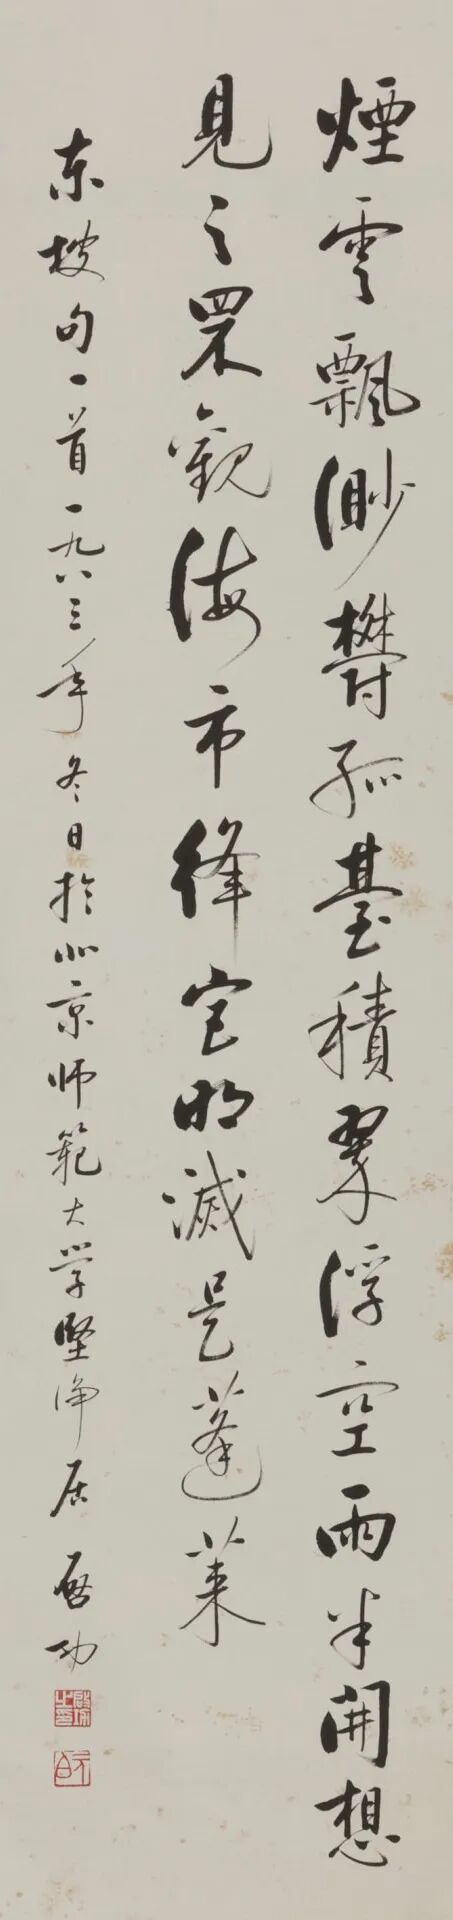 煙雲飄渺鬱孤臺積翠浮空雨半開想
見之罘觀海市絳宮明滅是蓬萊
东坡句一首一九八三年冬日於北京师範大学堅净居 启功
啟功之印
元白